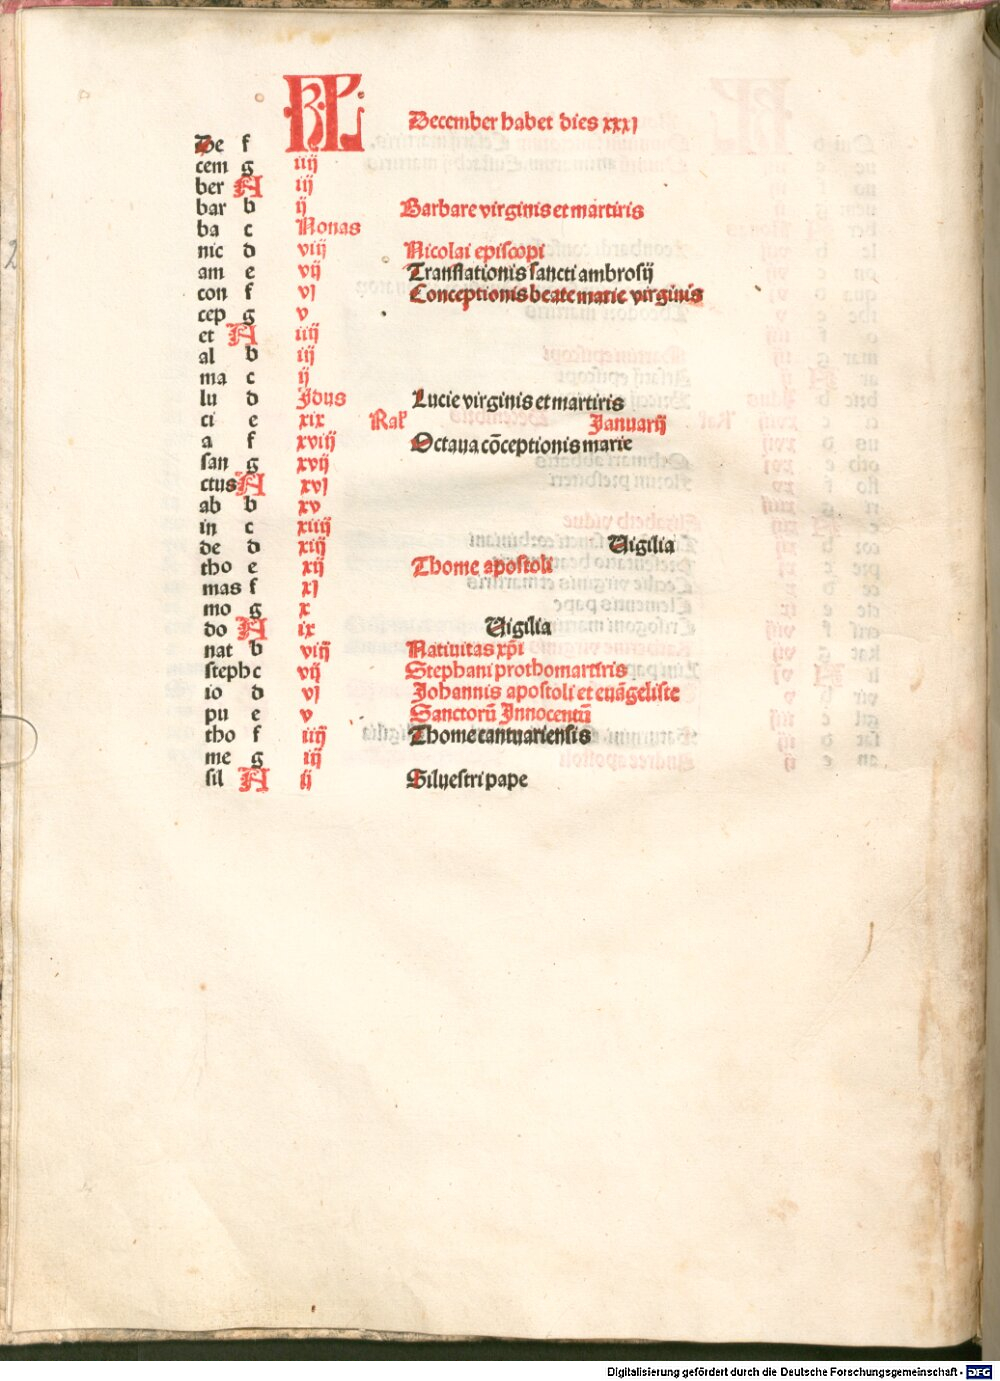 KL December habet dies xxxj
De f
cem g iiij
ber A iij
bar b ij Barbare virginis et martiris
ba c Nonas
nic d viij Nicolai episcopi
am e vij Translationis sancti ambrosij
con f vj Conceptionis beate marie virginis
cep g v
et A iiij
al b iij
ma c ij
lu d Jdus Lucie virginis et martiris
ci e xix Kal' Januarij
a f xviij Octaua cōceptionis marie
san g xvij
ctus A xvj
ab b xv
in c xiiij
de d xiij Uigilia
tho e xij Thome apostoli
mas f xj
mo g x
do A ix Uigilia
nat b viij Natiuitas xp̄i
steph c vij Stephani prothomartiris
io d vj Johannis apostoli et euāgeliste
pu e v Sanctorū Jnnocentū
tho f iiij Thome cantuariensis
me g iij
sil A ij Siluestri pape
2
Digitalisierung gefördert durch die Deutsche Forschungsgemeinschaft - DFG